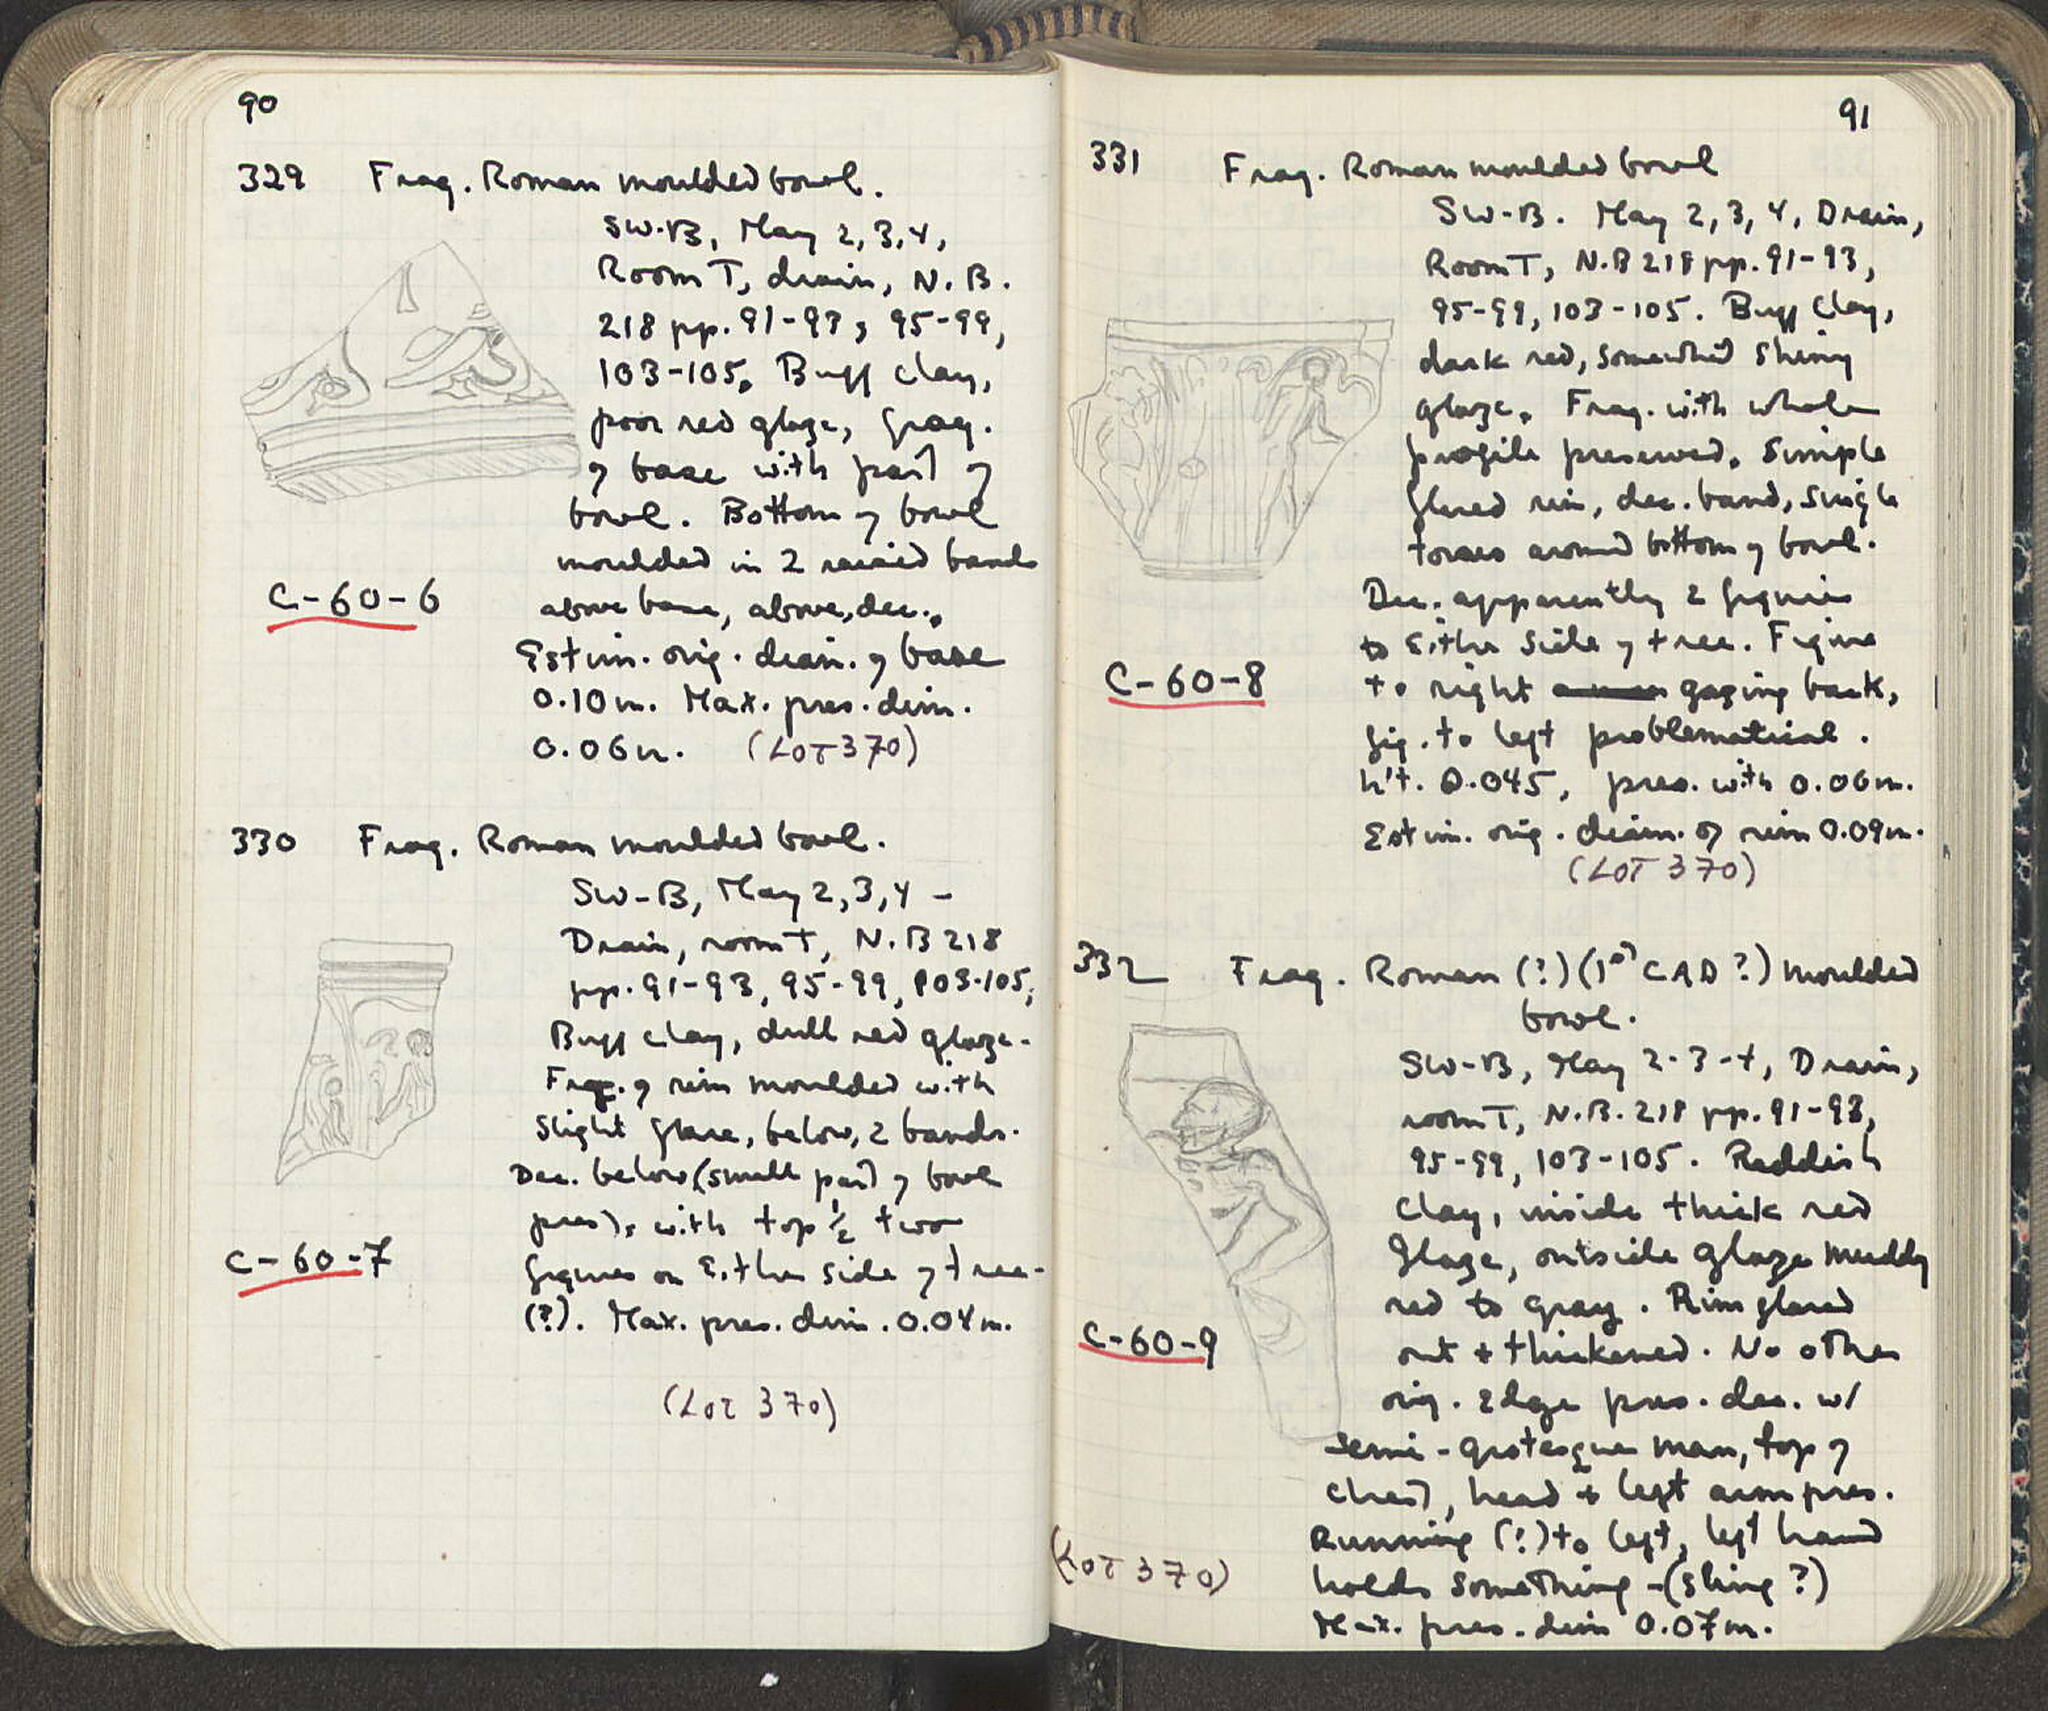 90
329 Frag. Roman moulded bowl.
SW-B, May 2, 3, 4,
Room T, drain, N.B.
218 pp. 91-93, 95-99,
103-105. Buff clay,
poor red glaze, frag.
of base with part of
bowl. Bottom of bowl
moulded in 2 raised bands
C-60-6
above base, above, dec.,
Estim. orig. diam. of base
0.10m. Max. pres. dim.
0.06m. (LOT 370)
330 Frag. Roman moulded bowl.
SW-B, May 2, 3, 4 -
Drain, room T, N.B 218
pp. 91-93, 95-99, 103-105,
Buff clay, dull red glaze.
Frag. of rim moulded with
slight flare, below, 2 bands.
Dec. below (small part of bowl
pres), with top 1/2 two
C-60-7
figures on either side of tree-
(?). Max. pres. dim. 0.04m.
(LOT 370)
91
331 Frag. Roman moulded bowl
SW-B. May 2, 3, 4, Drain,
Room T, N.B 218 pp. 91-93,
95-99, 103-105. Buff clay,
dark red, somewhat shiny
glaze. Frag. with whole
profile preserved. Simple
flared rim, dec. band, single
torus around bottom of bowl.
Dec. apparently 2 figures
to either side of tree. Figure
C-60-8
to right gazing back,
fig. to left problematical.
h't. 0.045, pres. with 0.06m.
Estim. orig. diam. of rim 0.09m.
(LOT 370)
332 Frag. Roman (?) (1st C AD?) moulded
bowl.
SW-B, May 2-3-4, Drain,
room T, N.B. 218 pp. 91-93,
95-99, 103-105. Reddish
clay, inside thick red
glaze, outside glaze muddy
red to gray. Rim flared
C-60-9
out + thickened. No other
orig. edge pres. dec. w/
semi-grotesque man, top of
chest, head + left arm pres.
Running (?) to left, left hand
(LOT 370)
holds something - (sling?)
Max. pres. dim 0.07m.